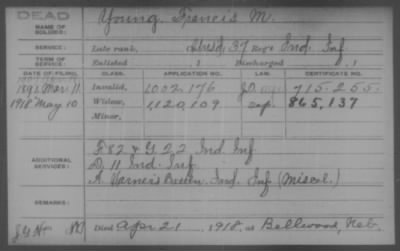 DEAD
Young, Francis M.
NAME OF SOLDIER:
SERVICE: Late rank, 37 Reg't Ind. Inf.
TERM OF SERVICE: Enlisted , 1 Discharged , 1
DATE OF FILING. CLASS. APPLICATION NO. LAW. CERTIFICATE NO.
1891 Mar. 11 Invalid, 1,002,176 715.255
1918 May 10 Widow, 1,120,109 865,137
Minor,
F 82 & G 22 Ind Inf
ADDITIONAL SERVICES: D. 11 Ind. Inf.
A. Ind. Inf (Miscel.)
REMARKS:
Died Apr 21, 1918, at Bellwood, Neb.